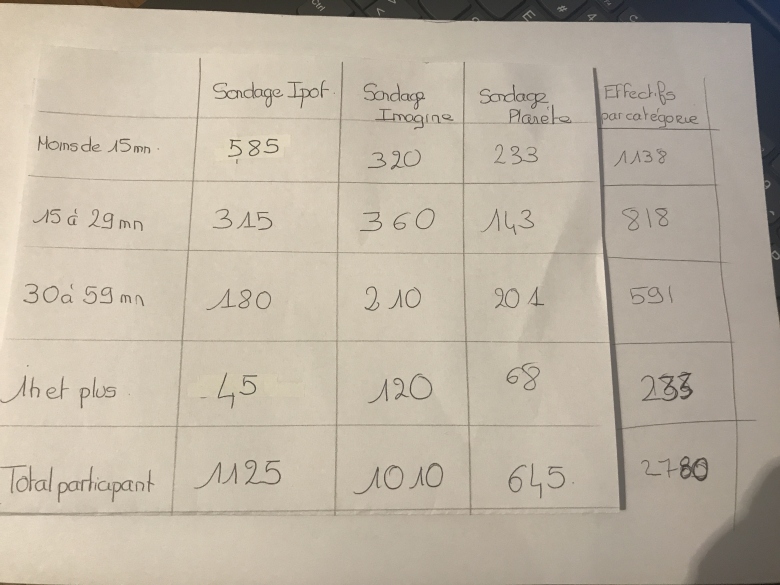 Sondage Ipof. Sondage Imagine Sondage Planéte Effectifs par catégorie
Moins de 15 mn. 585 320 233 1138
15 à 29 mn 315 360 143 818
30 à 59 mn 180 210 201 591
1h et plus 45 120 68 233
Total participant 1125 1010 645. 2780